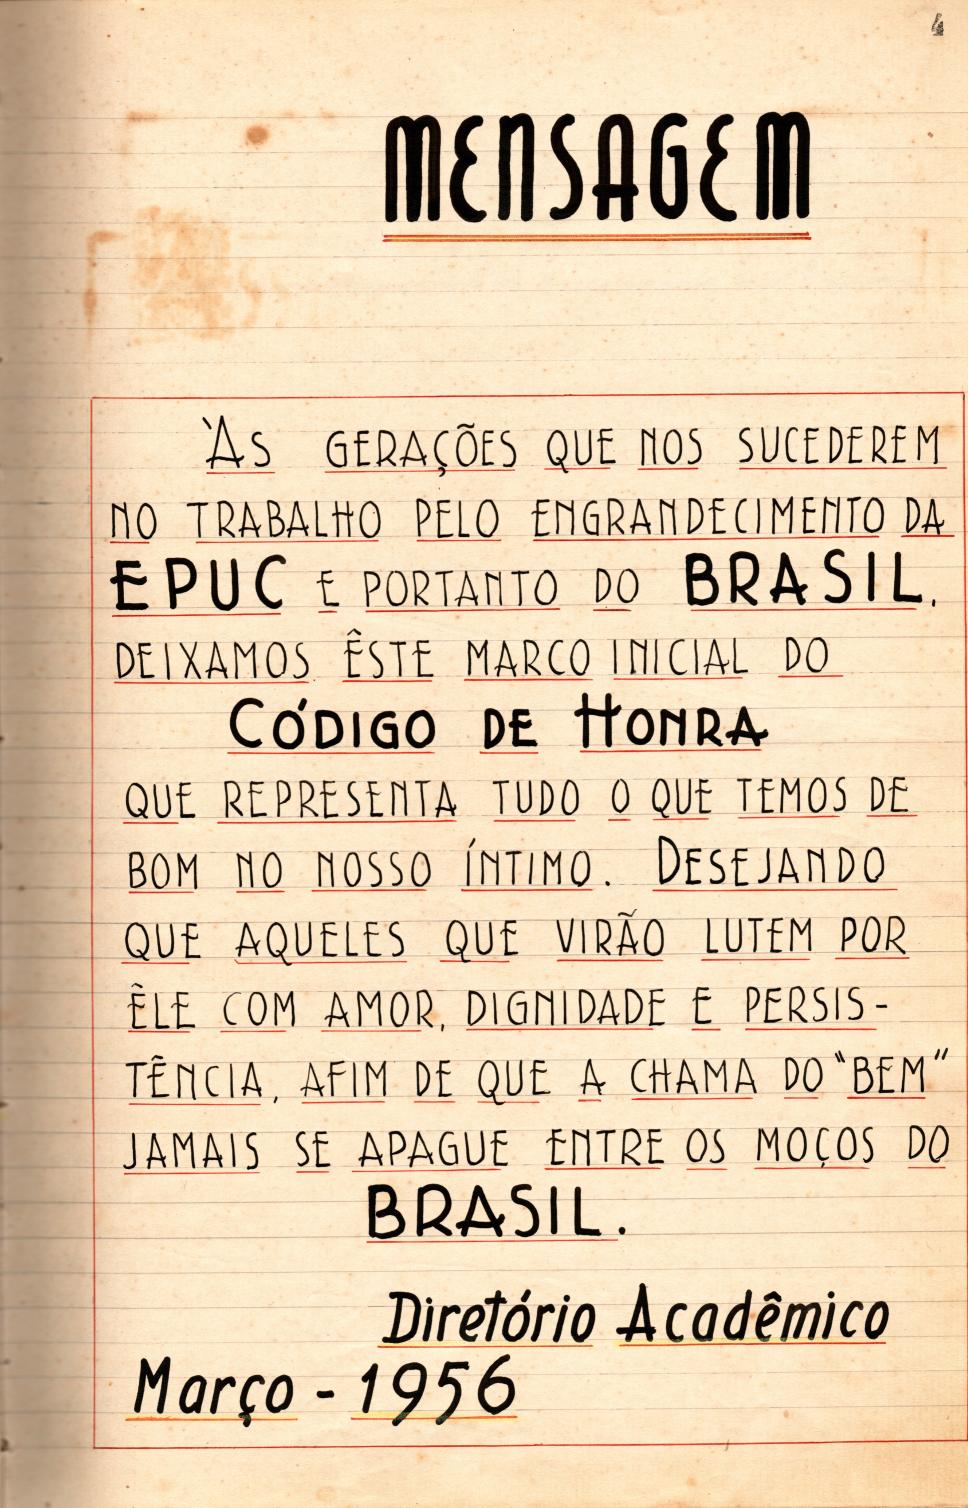 4
MENSAGEM
ÀS GERAÇÕES QUE NOS SUCEDEREM
NO TRABALHO PELO ENGRANDECIMENTO DA
EPUC E PORTANTO DO BRASIL,
DEIXAMOS ÊSTE MARCO INICIAL DO
CÓDIGO DE HONRA
QUE REPRESENTA TUDO O QUE TEMOS DE
BOM NO NOSSO ÍNTIMO. DESEJANDO
QUE AQUELES QUE VIRÃO LUTEM POR
ÊLE COM AMOR, DIGNIDADE E PERSIS-
TÊNCIA, AFIM DE QUE A CHAMA DO "BEM"
JAMAIS SE APAGUE ENTRE OS MOÇOS DO
BRASIL.
Diretório Acadêmico
Março - 1956